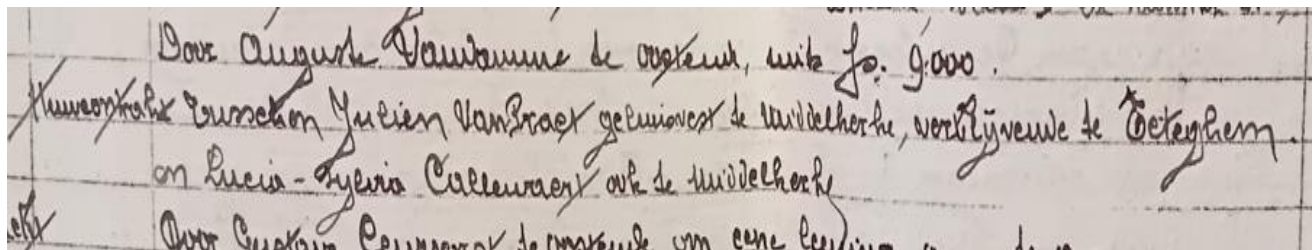 Door Auguste Vandamme te oostende, mits fr. 9.000.
Huwcontrakt tusschen Julien VanPraet gehuisvest te Middelkerke, verblijvende te Leteghem.
en Lucia-Sylvia Calleweart ook te Middelkerke
Door Gustave te oostende om eene